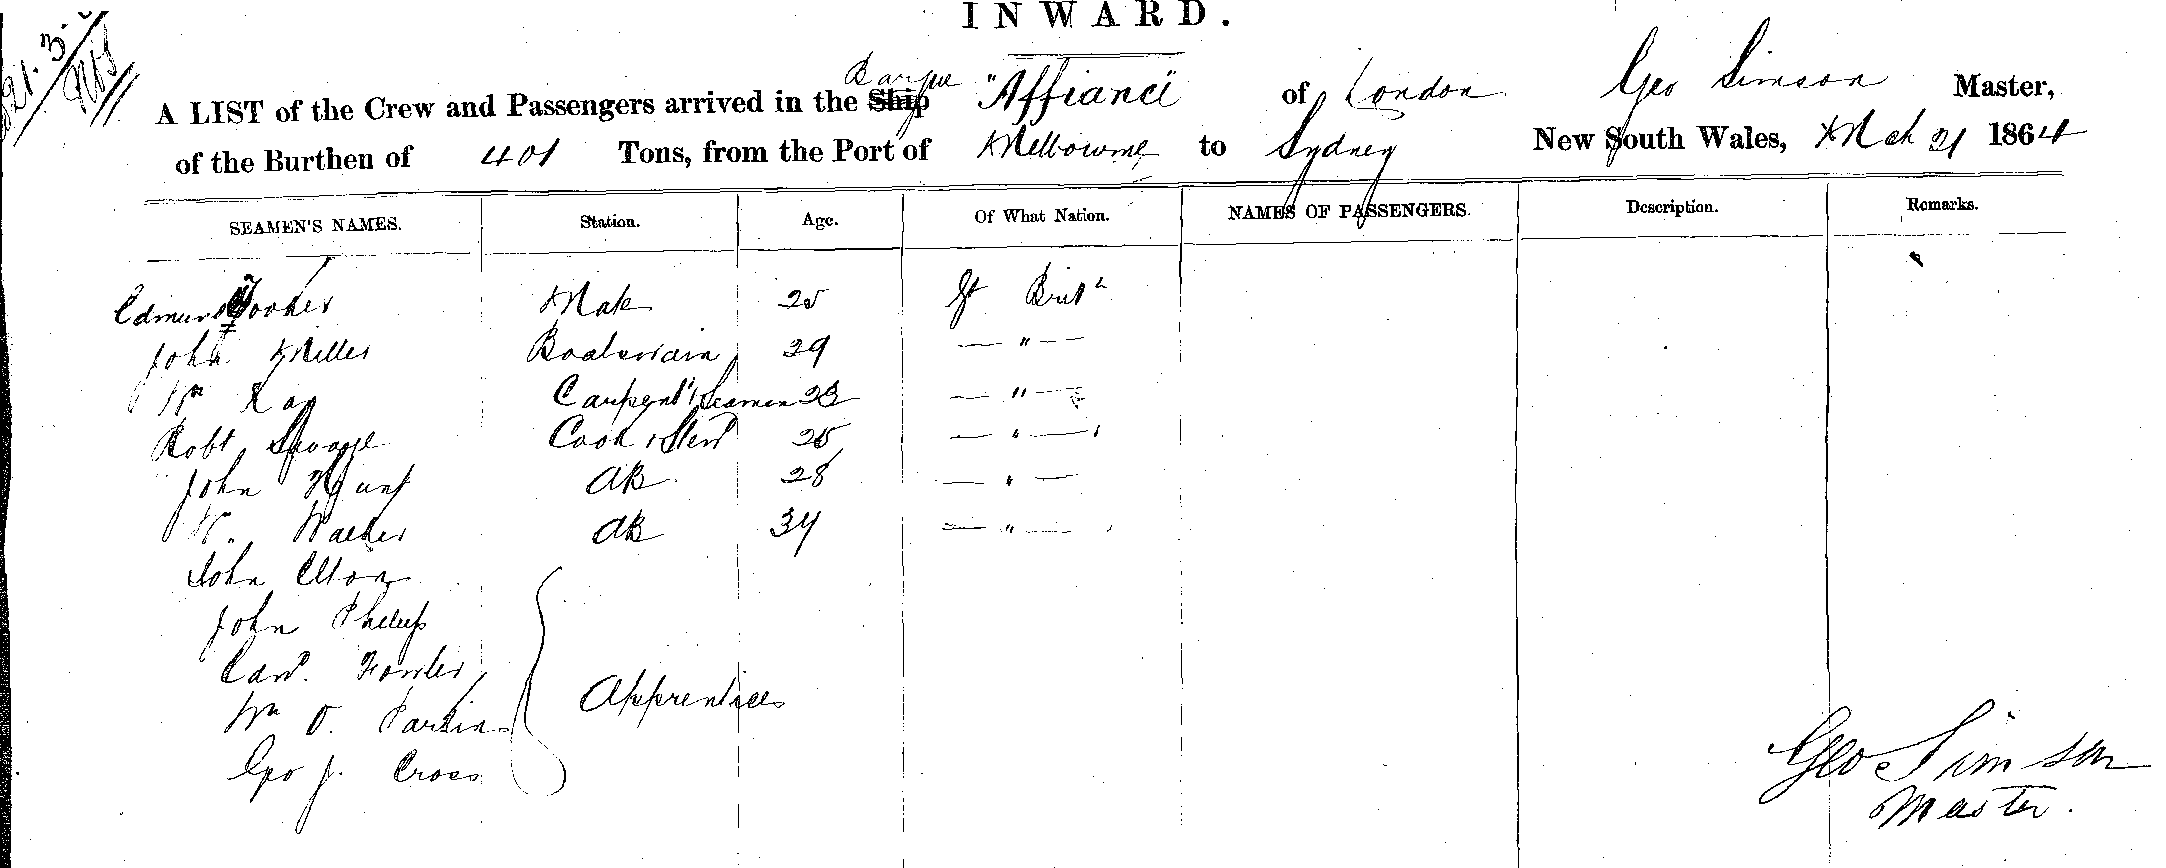 INWARD.
21.3.
A LIST of the Crew and Passengers arrived in the Ship Barque "Affiance" of London Geo Simson Master,
of the Burthen of 401 Tons, from the Port of Melbourne to Sydney New South Wales, Mch 21 1864
SEAMEN'S NAMES. Station. Age. Of What Nation. NAMES OF PASSENGERS. Description. Remarks.
Edmund Tooker Mate 25 Gt Brit
John Miller Boatswain 29 — " —
Wm Kay Carpentr Seaman 23 — " —
Robt Savage Cook & Stewd 25 — " —
John AB 28 — " —
W. Walker AB 34 — " —
John Elton
John Philip
Edwd. Fowler
Wm O. Parkin Apprentices
Geo J. Cross
Geo Simson
Master.